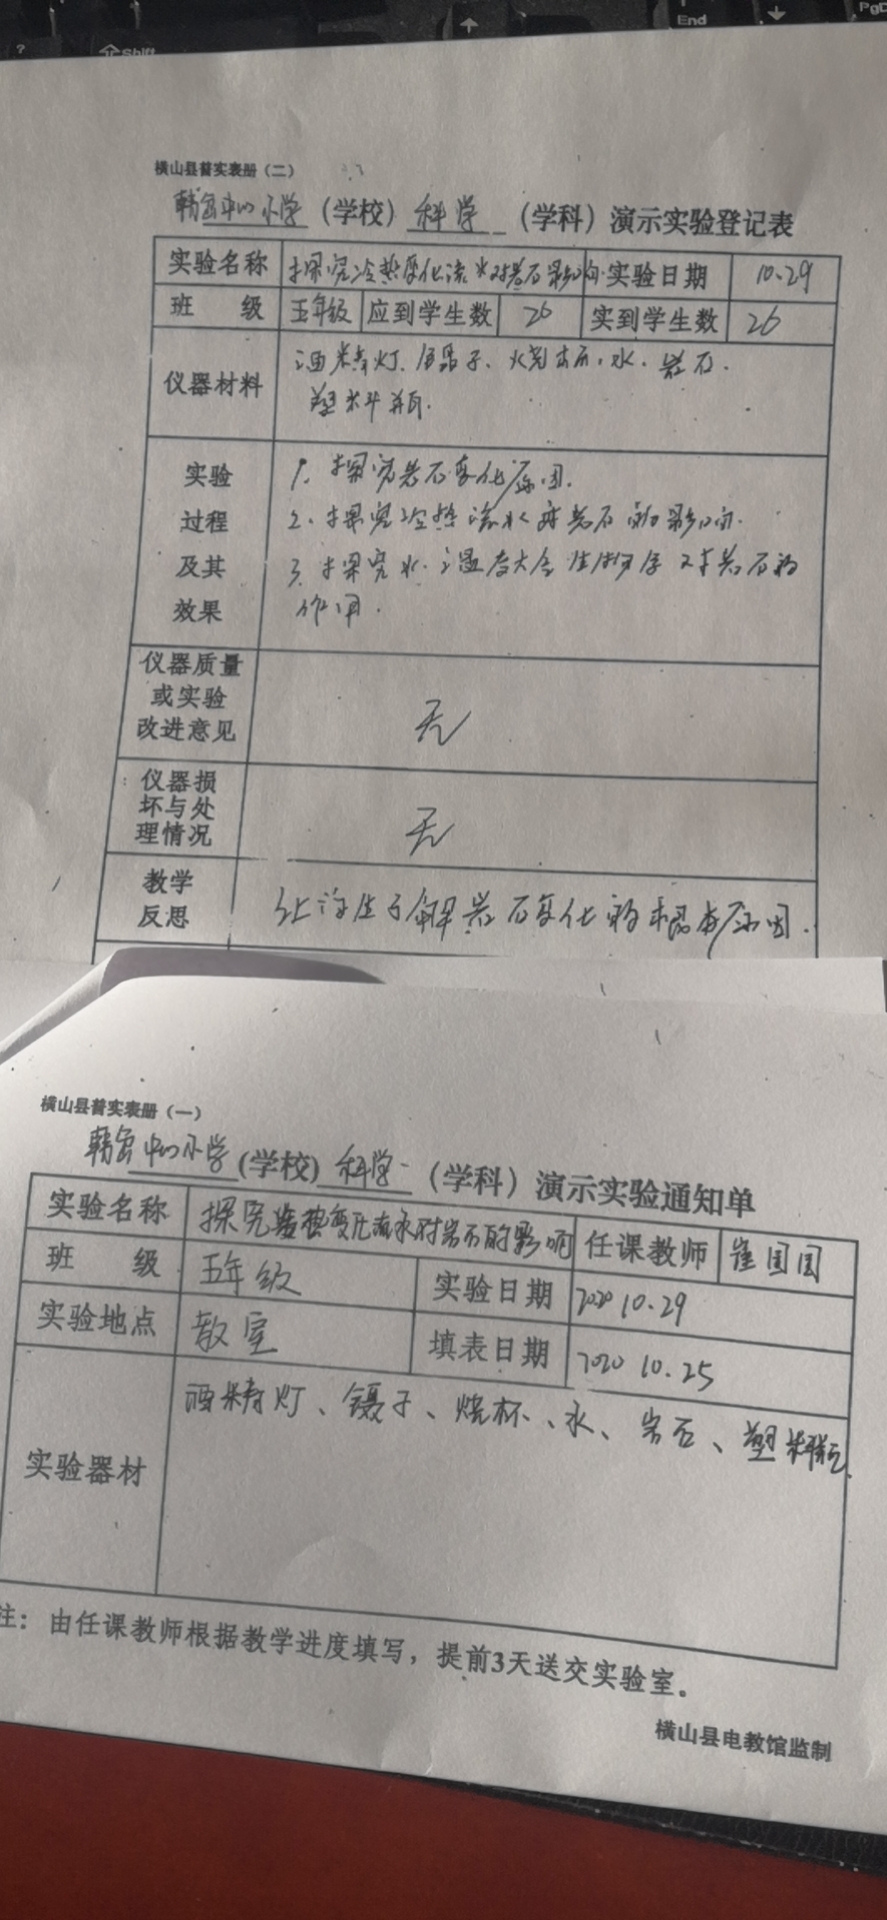 Shift
End
PgD
横山县普实表册（二）
韩岔中心小学（学校）科学（学科）演示实验登记表
实验名称 探究冷热变化流水对岩石影响 实验日期 10.29
班 级 五年级 应到学生数 26 实到学生数 26
仪器材料 酒精灯、镊子、烧杯、水、岩石、
塑料瓶.
实验 1、探究岩石变化原因.
过程 2、探究冷热流水对岩石的影响.
及其 3、探究水、温度大气生物等对岩石的
效果 作用.
仪器质量
或实验
改进意见
无
仪器损
坏与处
理情况
无
教学
反思
让学生了解岩石变化的根本原因.
横山县普实表册（一）
韩岔中心小学（学校）科学（学科）演示实验通知单
实验名称 探究冷热变化流水对岩石的影响 任课教师 崔国国
班 级 五年级 实验日期 2020 10.29
实验地点 教室 填表日期 2020 10.25
实验器材 酒精灯、镊子、烧杯、水、岩石、塑料瓶.
注：由任课教师根据教学进度填写，提前3天送交实验室。
横山县电教馆监制